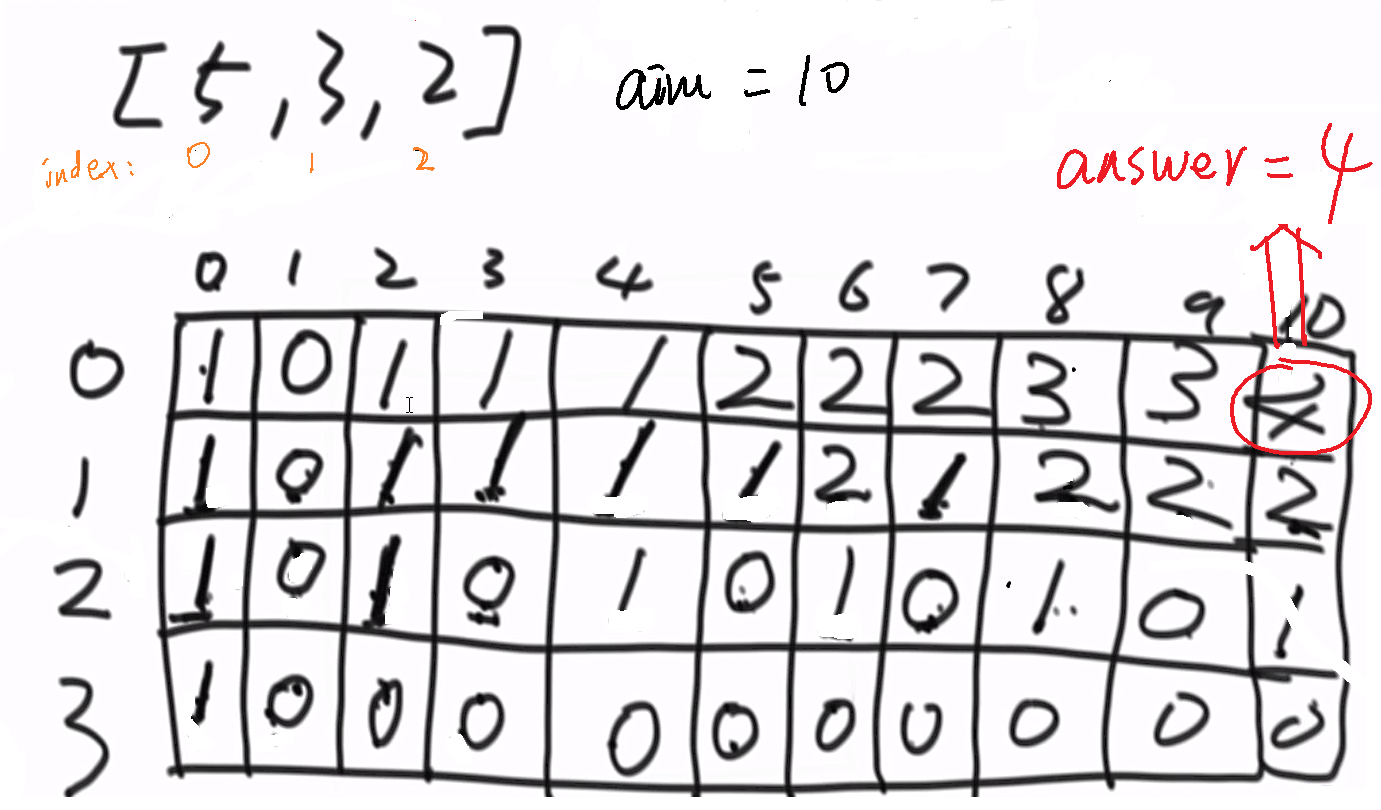 [5,3,2] aim = 10
index: 0 1 2
answer = 4
0 1 2 3 4 5 6 7 8 9 10
0 1 0 1 1 1 2 2 2 3 3 4
1 1 0 1 1 1 1 2 1 2 2 2
2 1 0 1 0 1 0 1 0 1 0 1
3 1 0 0 0 0 0 0 0 0 0 0